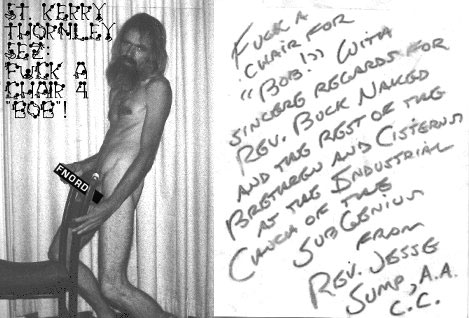 ST. KERRY
THORNLEY
SEZ:
FUCK A
CHAIR 4
"BOB"!
FNORD
FUCK A
CHAIR FOR
"BOB!" WITH
SINCERE REGARDS FOR
REV. BUCK NAKED
AND THE REST OF THE
BRETHREN AND CISTERNS
AT THE INDUSTRIAL
CHURCH OF THE
SUBGENIUS
FROM
REV. JESSE
SUMP, A.A.
C.C.